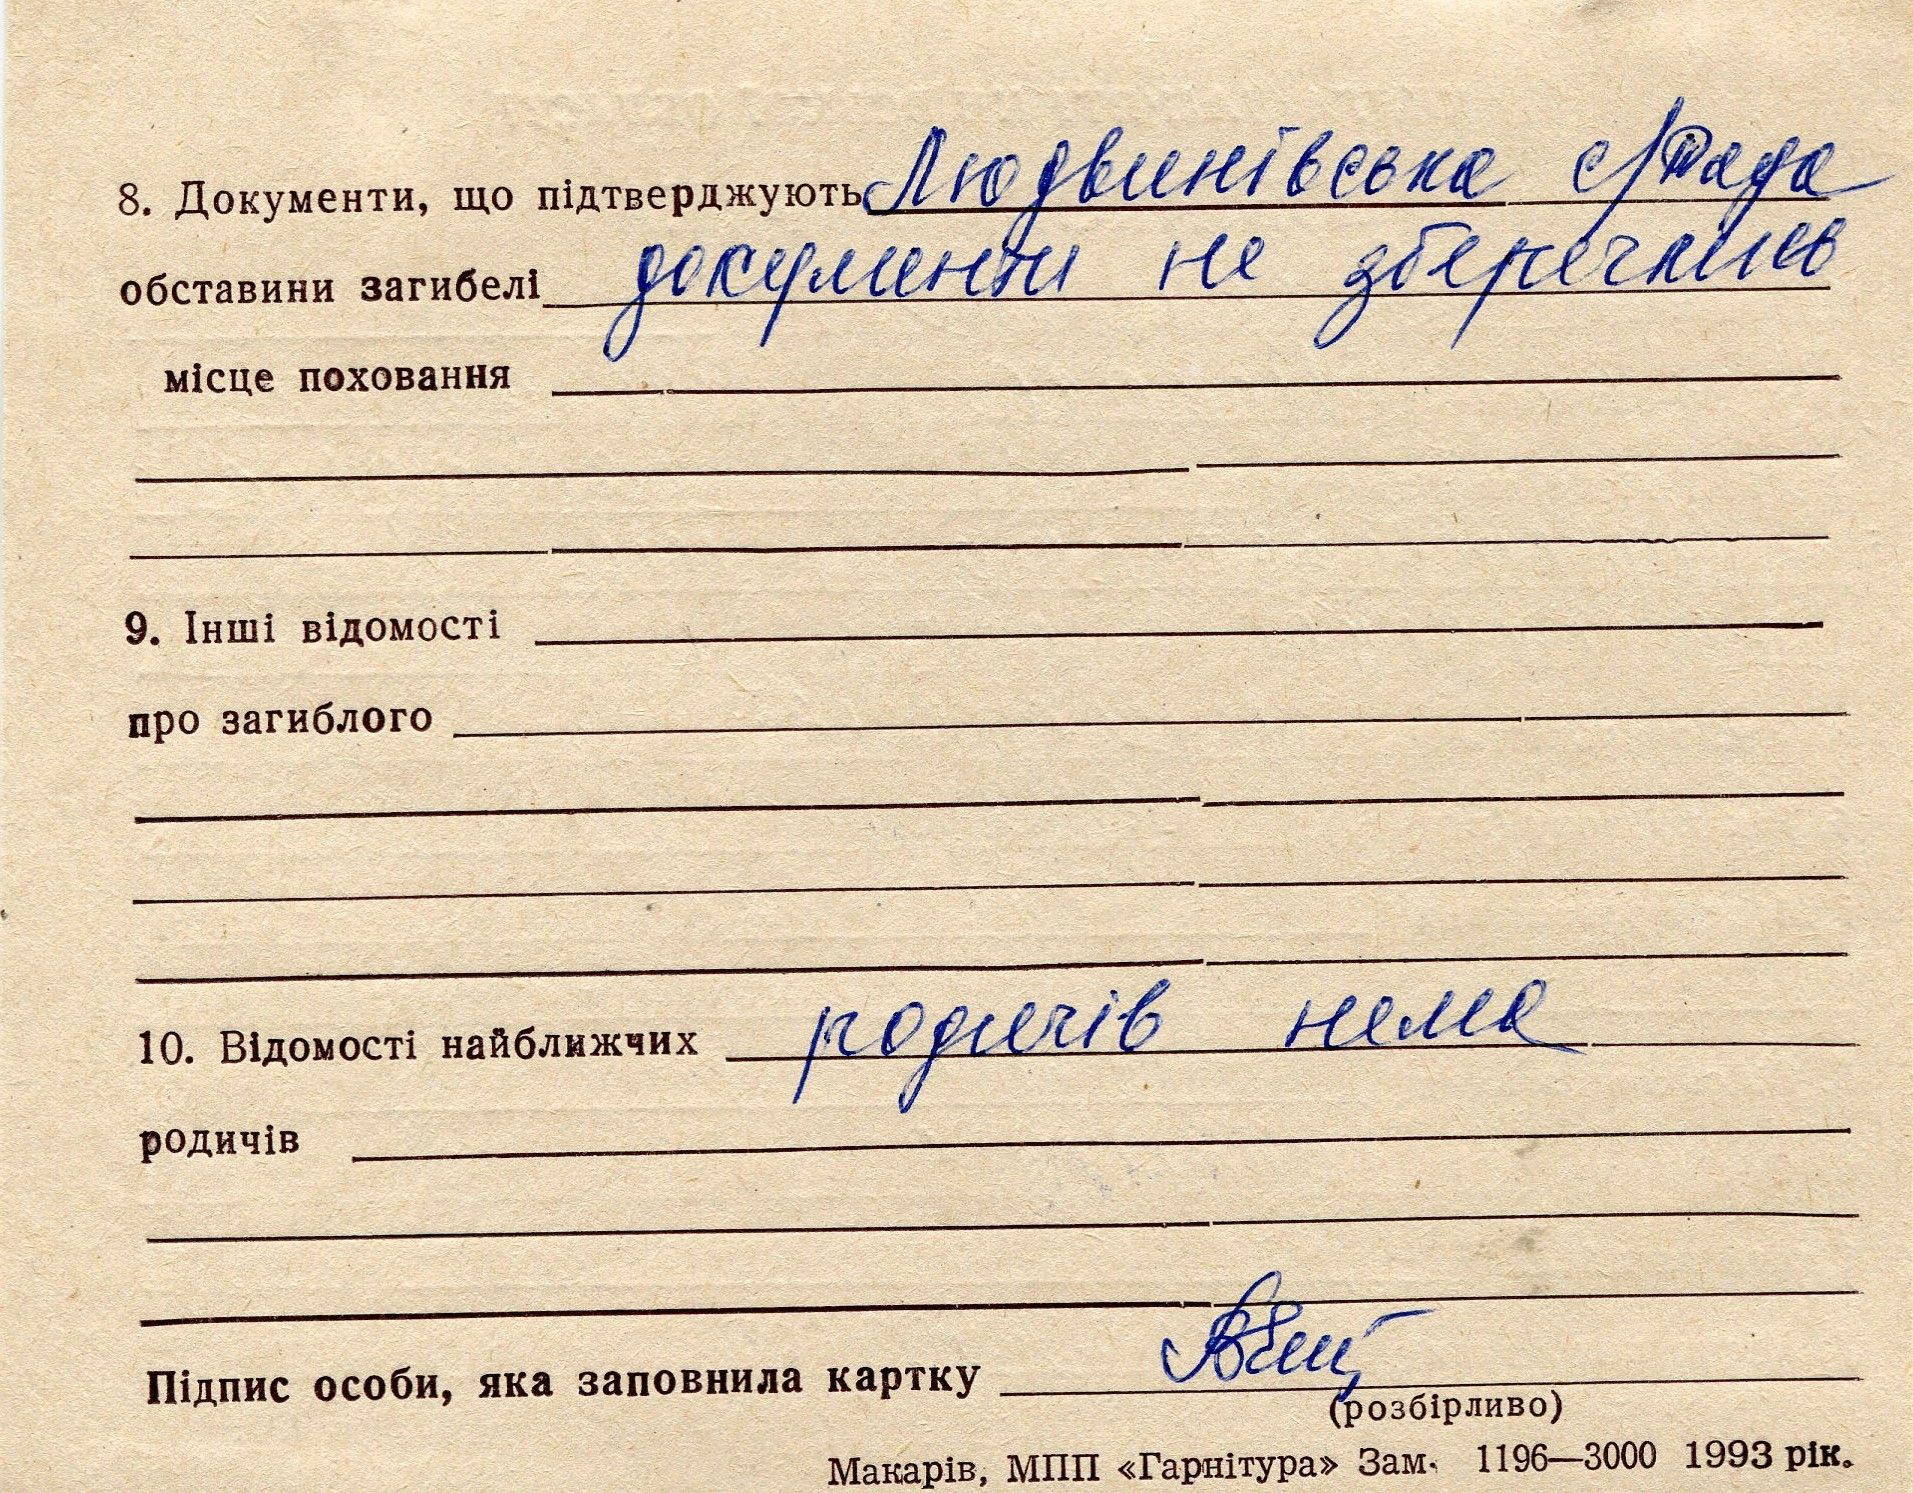 8. Документи, що підтверджують Людвинівська с/рада
обставини загибелі документи не збереглись
місце поховання
9. Інші відомості
про загиблого
10. Відомості найближчих родичів нема
родичів
Підпис особи, яка заповнила картку
(розбірливо)
Макарів, МПП «Гарнітура» Зам. 1196—3000 1993 рік.